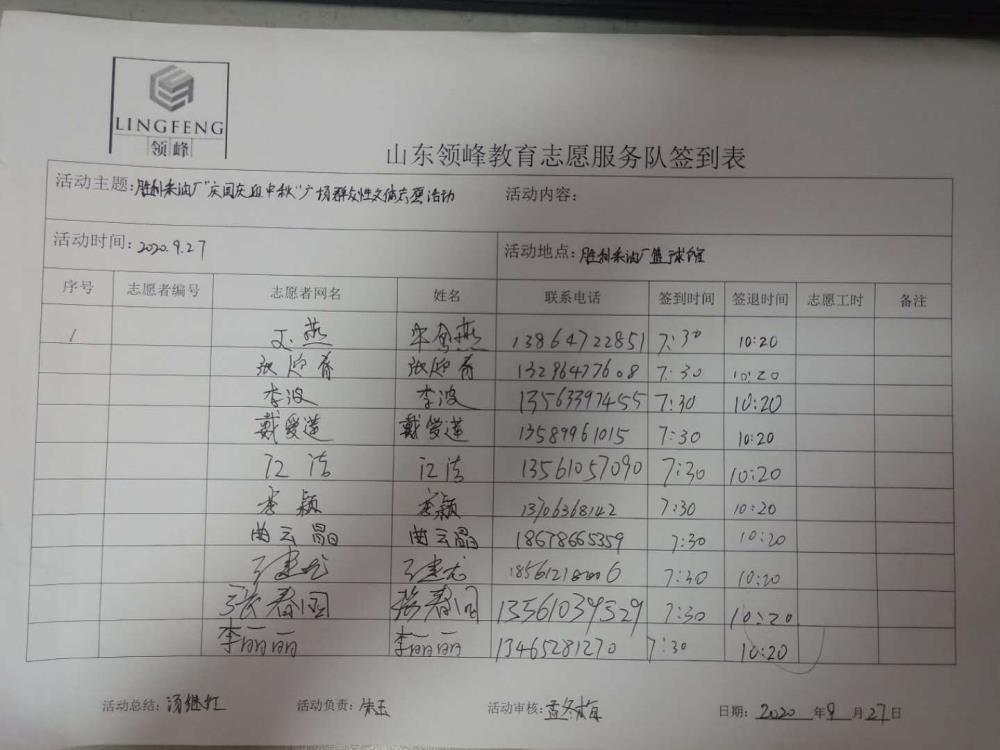 LINGFENG
领峰
山东领峰教育志愿服务队签到表
活动主题:胜利采油厂"庆国庆迎中秋"广场群众性文体志愿活动 活动内容:
活动时间:2020.9.27 活动地点:胜利采油厂篮球馆
序号 志愿者编号 志愿者网名 姓名 联系电话 签到时间 签退时间 志愿工时 备注
1 燕 燕 13864722851 7:30 10:20
张迎春 张迎春 13296477608 7:30 10:20
李波 李波 13563397455 7:30 10:20
戴爱莲 戴爱莲 13589961015 7:30 10:20
江洁 江洁 13561057090 7:30 10:20
李颖 李颖 13706368142 7:30 10:20
曲云晶 曲云晶 18678665359 7:30 10:20
7:30 10:20
张春国 张春国 13561039329 7:30 10:20
李丽丽 李丽丽 13465281270 7:30 10:20
活动总结:汤继红 活动负责:朱玉 活动审核:孟冬梅 日期:2020年9月27日